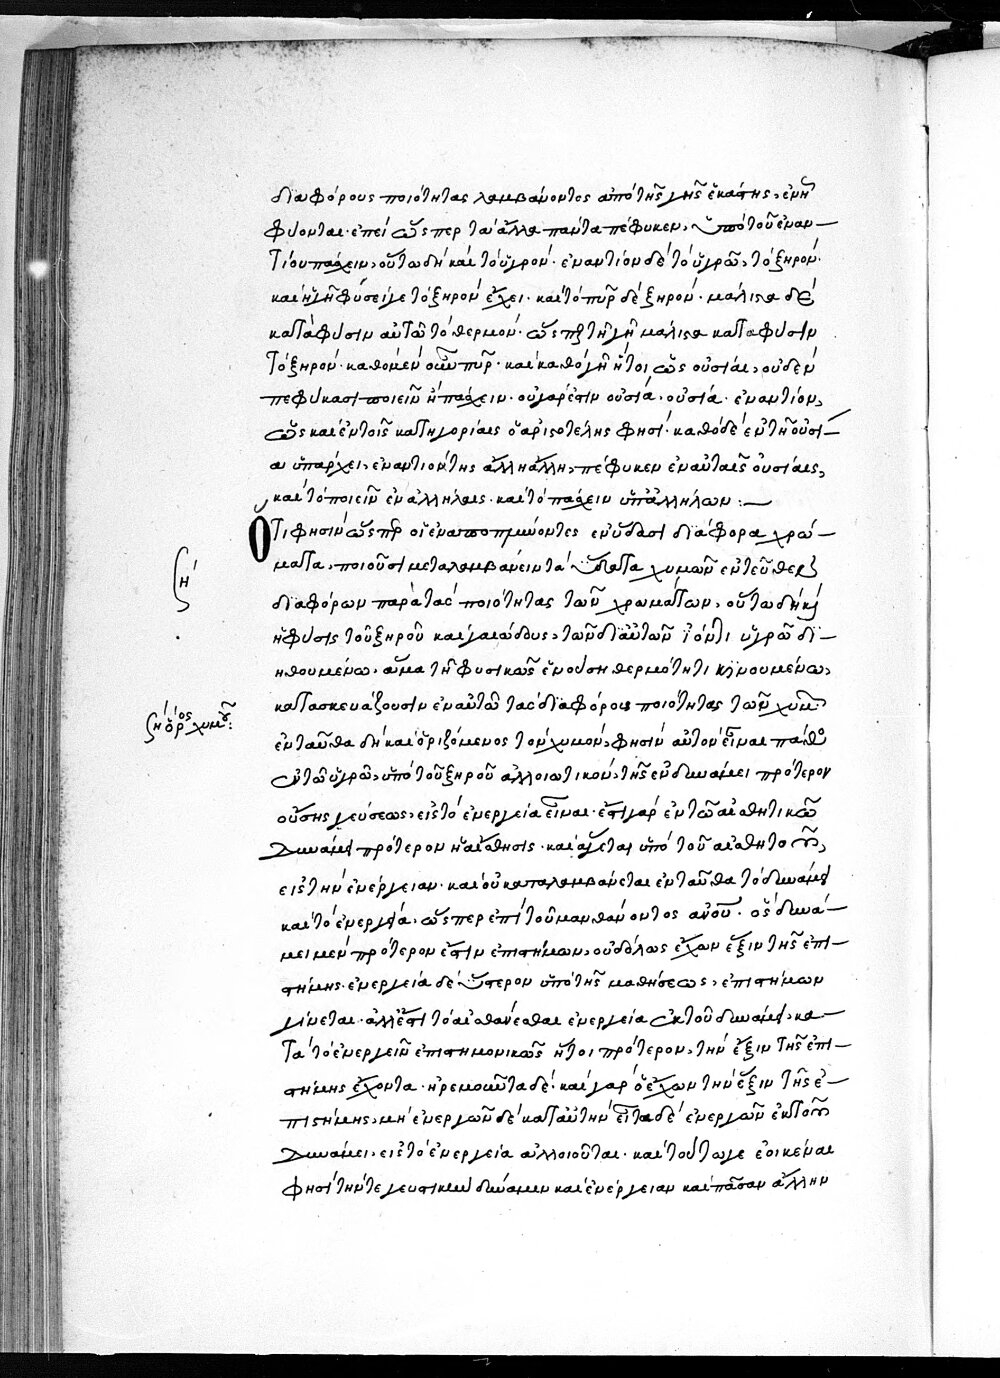 διαφόρους ποιότητας λαμβάνοντος ἀπὸ τῆς γῆς ἑκάστης, ἐν ᾗ
φύονται· ἐπεὶ ὥσπερ τἆλλα πάντα πέφυκεν, ὑπὸ τοῦ ἐναν-
τίου πάσχειν, οὕτω δὴ καὶ τὸ ὑγρόν· ἐναντίον δὲ τῷ ὑγρῷ, τὸ ξηρόν·
καὶ ἡ γῆ φύσει γε τὸ ξηρὸν ἔχει· καὶ τὸ πῦρ δὲ ξηρόν· μάλιστα δὲ
κατὰ φύσιν αὐτῷ τὸ θερμόν· ὥσπερ τῇ γῇ μάλιστα κατὰ φύσιν
τὸ ξηρόν· καθὸ μὲν οὖν πῦρ· καὶ καθὸ γῆ ἤτοι ὡς οὐσίαι, οὐδὲν
πεφύκασι ποιεῖν ἢ πάσχειν· οὐ γάρ ἐστιν οὐσία, οὐσίᾳ ἐναντίον,
ὡς καὶ ἐν τοῖς κατηγορίαις ὁ ἀριστοτέλης φησί· καθὸ δὲ ἐν τῇ οὐσί-
αι ὑπάρχει, ἐναντιότης ἄλλη ἄλλη, πέφυκεν ἐν αὐταῖς οὐσίαις,
καὶ τὸ ποιεῖν ἐν ἀλλήλαις· καὶ τὸ πάσχειν ὑπ' ἀλλήλων :—
Ὅτι φησὶν ὥσπερ οἱ ἐναποπλύνοντες ἐν ὕδασι διάφορα χρώ-
ματα, ποιοῦσι μεταλαμβάνειν τὰ ὕδατα χυμῶν ἐντεῦθεν
διαφόρων παρὰ τὰς ποιότητας τῶν χρωμάτων, οὕτω δὴ καὶ
ἡ φύσις τοῦ ξηροῦ καὶ γαιώδους, τῶν δι' αὐτῶν ἰόντι ὑγρῷ δι-
ηθουμένῳ, ἅμα τῇ φυσικῶς ἐνούσῃ θερμότητι κινουμένῳ,
κατασκευάζουσιν ἐν αὐτῷ τὰς διαφόρους ποιότητας τῶν χυμῶν·
ἐνταῦθα δὴ καὶ ὁριζόμενος τὸν χυμόν, φησὶν αὐτὸν εἶναι πάθος
ἐν τῷ ὑγρῷ, ὑπὸ τοῦ ξηροῦ ἀλλοιωτικόν, τῆς ἐν δυνάμει πρότερον
οὔσης γεύσεως, εἰς τὸ ἐνεργείᾳ εἶναι· ἔστι γὰρ ἐν τῷ αἰσθητικῷ
δυνάμει πρότερον ἡ αἴσθησις· καὶ ἄγεται ὑπὸ τοῦ αἰσθητοῦ,
εἰς τὴν ἐνέργειαν· καὶ οὐ καταλαμβάνεται ἐνταῦθα τὸ δυνάμει
καὶ τὸ ἐνεργείᾳ, ὥσπερ ἐπὶ τοῦ μανθάνοντος ἀνου· ὃς δυνά-
μει μὲν πρότερον ἔστιν ἐπιστήμων, οὐδόλως ἔχων ἕξιν τῆς ἐπι-
στήμης· ἐνεργείᾳ δὲ ὕστερον ὑπὸ τῆς μαθήσεως, ἐπιστήμων
γίνεται· ἀλλ' ἔστι τὸ αἰσθάνεσθαι ἐνεργείᾳ ἐκ τοῦ δυνάμει, κα-
τὰ τὸ ἐνεργεῖν ἐπιστημονικῶς ἤτοι πρότερον, τὴν ἕξιν τῆς ἐπι-
στήμης ἔχοντα· ἠρεμοῦντα δέ· καὶ γὰρ ὁ ἔχων τὴν ἕξιν τῆς ἐ-
πιστήμης, μὴ ἐνεργῶν δὲ κατ' αὐτὴν εἶτα δὲ ἐνεργῶν ἐκ τοῦ
δυνάμει, εἰς τὸ ἐνεργείᾳ ἀλλοιοῦται· καὶ τούτῳ γε ἐοικέναι
φησὶ τήν τε γευστικὴν δύναμιν καὶ ἐνέργειαν καὶ πᾶσαν ἄλλην
ση
ση ὅρος χυμοῦ: